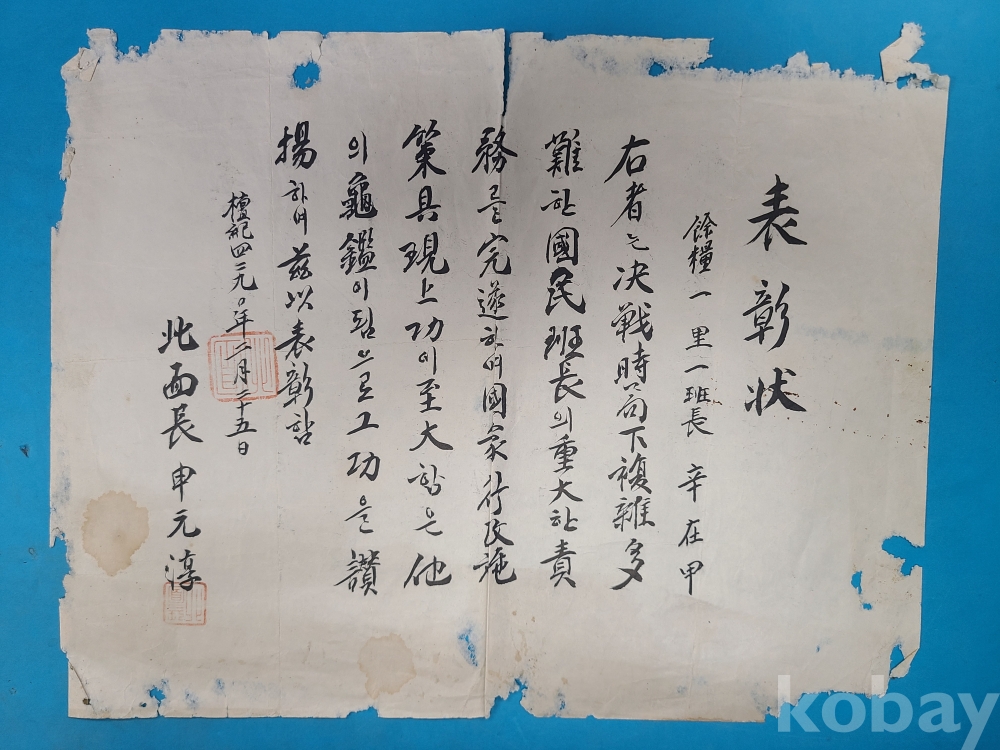 表彰状
餘糧一里一班長 辛在甲
右者는 決戰時局下複雜多
難한 國民班長의 重大한 責
務를 完遂하여 國家行政施
策具現上 功이 至大함은 他
의 龜鑑이 됨으로 그 功을 讚
揚하여 玆以表彰함
檀紀四二九〇年二月二十五日
北面長 申元淳
kobay